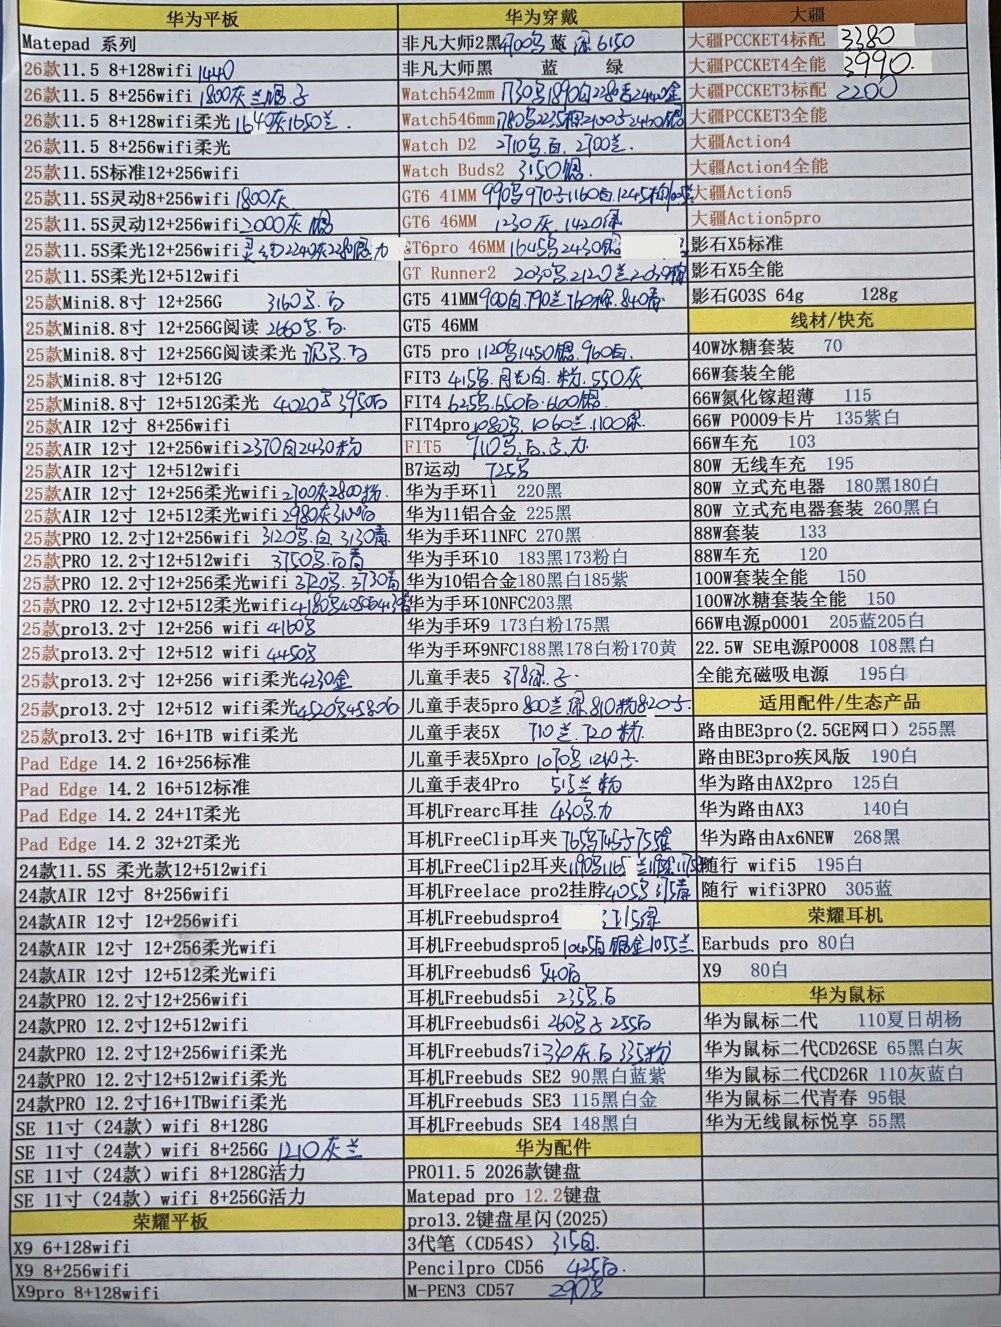 华为平板
Matepad 系列
26款11.5 8+128wifi 1440
26款11.5 8+256wifi 1800灰兰
26款11.5 8+128wifi柔光 1640灰1650兰.
26款11.5 8+256wifi柔光
25款11.5S标准12+256wifi
25款11.5S灵动8+256wifi 1800灰
25款11.5S灵动12+256wifi 2000灰
25款11.5S柔光12+256wifi
25款11.5S柔光12+512wifi
25款Mini8.8寸 12+256G 3160
25款Mini8.8寸 12+256G阅读 2660
25款Mini8.8寸 12+256G阅读柔光
25款Mini8.8寸 12+512G
25款Mini8.8寸 12+512G柔光 4020 3950白
25款AIR 12寸 8+256wifi
25款AIR 12寸 12+256wifi 2370白2430粉
25款AIR 12寸 12+512wifi
25款AIR 12寸 12+256柔光wifi 2700灰2800粉.
25款AIR 12寸 12+512柔光wifi 2980灰
25款PRO 12.2寸12+256wifi 3120 3130青
25款PRO 12.2寸12+512wifi 3750
25款PRO 12.2寸12+256柔光wifi 3720 3730青
25款PRO 12.2寸12+512柔光wifi 4180
25款pro13.2寸 12+256 wifi 4160
25款pro13.2寸 12+512 wifi 4450
25款pro13.2寸 12+256 wifi柔光 4230金
25款pro13.2寸 12+512 wifi柔光
25款pro13.2寸 16+1TB wifi柔光
Pad Edge 14.2 16+256标准
Pad Edge 14.2 16+512标准
Pad Edge 14.2 24+1T柔光
Pad Edge 14.2 32+2T柔光
24款11.5S 柔光款12+512wifi
24款AIR 12寸 8+256wifi
24款AIR 12寸 12+256wifi
24款AIR 12寸 12+256柔光wifi
24款AIR 12寸 12+512柔光wifi
24款PRO 12.2寸12+256wifi
24款PRO 12.2寸12+512wifi
24款PRO 12.2寸12+256wifi柔光
24款PRO 12.2寸12+512wifi柔光
24款PRO 12.2寸16+1TBwifi柔光
SE 11寸（24款）wifi 8+128G
SE 11寸（24款）wifi 8+256G 1210灰兰
SE 11寸（24款）wifi 8+128G活力
SE 11寸（24款）wifi 8+256G活力
荣耀平板
X9 6+128wifi
X9 8+256wifi
X9pro 8+128wifi
华为穿戴
非凡大师2黑 蓝 6150
非凡大师黑 蓝 绿
Watch542mm
Watch546mm
Watch D2 2710 2700兰.
Watch Buds2 3150
GT6 41MM
GT6 46MM 1230灰.1420绿
GT6pro 46MM
GT Runner2
GT5 41MM 900白.790兰.
GT5 46MM
GT5 pro 1120 1450 960白.
FIT3 415 月光白.粉.550灰
FIT4 625 650白.600
FIT4pro 1080 1060兰.1100绿
FIT5 910
B7运动 725
华为手环11 220黑
华为11铝合金 225黑
华为手环11NFC 270黑
华为手环10 183黑173粉白
华为10铝合金180黑白185紫
华为手环10NFC203黑
华为手环9 173白粉175黑
华为手环9NFC188黑178白粉170黄
儿童手表5 378绿.
儿童手表5pro 800兰绿810粉820
儿童手表5X 710兰.720粉
儿童手表5Xpro 1070 1240
儿童手表4Pro 515兰粉
耳机Frearc耳挂 430
耳机FreeClip耳夹
耳机FreeClip2耳夹
耳机Freelace pro2挂脖 405 375青
耳机Freebudspro4
耳机Freebudspro5 1045白 1055兰
耳机Freebuds6 540白
耳机Freebuds5i 235
耳机Freebuds6i 260 255白
耳机Freebuds7i 330灰.白335粉
耳机Freebuds SE2 90黑白蓝紫
耳机Freebuds SE3 115黑白金
耳机Freebuds SE4 148黑白
华为配件
PRO11.5 2026款键盘
Matepad pro 12.2键盘
pro13.2键盘星闪(2025)
3代笔（CD54S） 315白.
Pencilpro CD56 425白.
M-PEN3 CD57 290
大疆
大疆PCCKET4标配 3380
大疆PCCKET4全能 3990.
大疆PCCKET3标配 2200
大疆PCCKET3全能
大疆Action4
大疆Action4全能
大疆Action5
大疆Action5pro
影石X5标准
影石X5全能
影石GO3S 64g 128g
线材/快充
40W冰糖套装 70
66W套装全能
66W氮化镓超薄 115
66W P0009卡片 135紫白
66W车充 103
80W 无线车充 195
80W 立式充电器 180黑180白
80W 立式充电器套装 260黑白
88W套装 133
88W车充 120
100W套装全能 150
100W冰糖套装全能 150
66W电源p0001 205蓝205白
22.5W SE电源P0008 108黑白
全能充磁吸电源 195白
适用配件/生态产品
路由BE3pro(2.5GE网口) 255黑
路由BE3pro疾风版 190白
华为路由AX2pro 125白
华为路由AX3 140白
华为路由Ax6NEW 268黑
随行 wifi5 195白
随行 wifi3PRO 305蓝
荣耀耳机
Earbuds pro 80白
X9 80白
华为鼠标
华为鼠标二代 110夏日胡杨
华为鼠标二代CD26SE 65黑白灰
华为鼠标二代CD26R 110灰蓝白
华为鼠标二代青春 95银
华为无线鼠标悦享 55黑